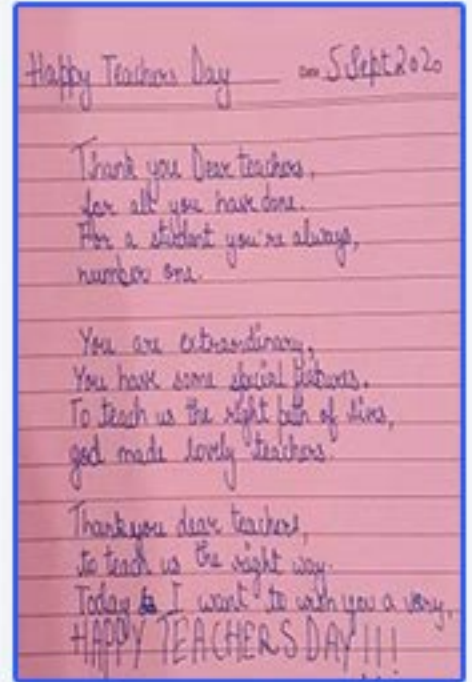 Happy Teachers Day Date 5 Sept 2020
Thank you Dear teachers,
for all you have done.
For a student you're always,
number one.
You are extraordinary,
You have some special features.
To teach us the right path of lives,
god made lovely teachers.
Thankyou dear teachers,
to teach us the right way.
Today I want to wish you a very,
HAPPY TEACHERS DAY!!!